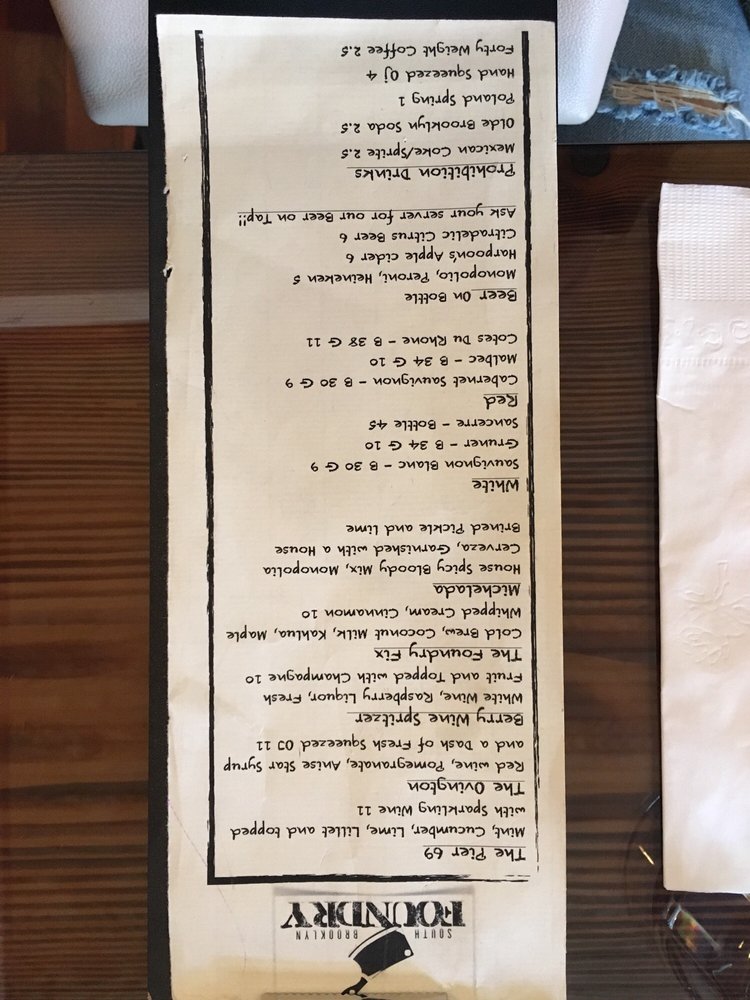 SOUTH BROOKLYN
FOUNDRY
The Pier 69
Mint, Cucumber, Lime, Lillet and topped
with Sparkling Wine 11
The Ovington
Red wine, Pomegranate, Anise Star Syrup
and a Dash of Fresh Squeezed OJ 11
Berry Wine Spritzer
White Wine, Raspberry Liquor, Fresh
Fruit and Topped with Champagne 10
The Foundry Fix
Cold Brew, Coconut Milk, Kahlua, Maple
Whipped Cream, Cinnamon 10
Michelada
House Spicy Bloody Mix, Monopolia
Cerveza, Garnished with a House
Brined Pickle and Lime
White
Sauvignon Blanc - B 30 G 9
Gruner - B 34 G 10
Sancerre - Bottle 45
Red
Cabernet Sauvignon - B 30 G 9
Malbec - B 34 G 10
Cotes Du Rhone - B 38 G 11
Beer On Bottle
Monopolio, Peroni, Heineken 5
Harpoon's Apple cider 6
Citradelic Citrus Beer 6
Ask your server for our Beer on Tap!!
Prohibition Drinks
Mexican Coke/Sprite 2.5
Olde Brooklyn Soda 2.5
Poland Spring 1
Hand Squeezed Oj 4
Forty Weight Coffee 2.5